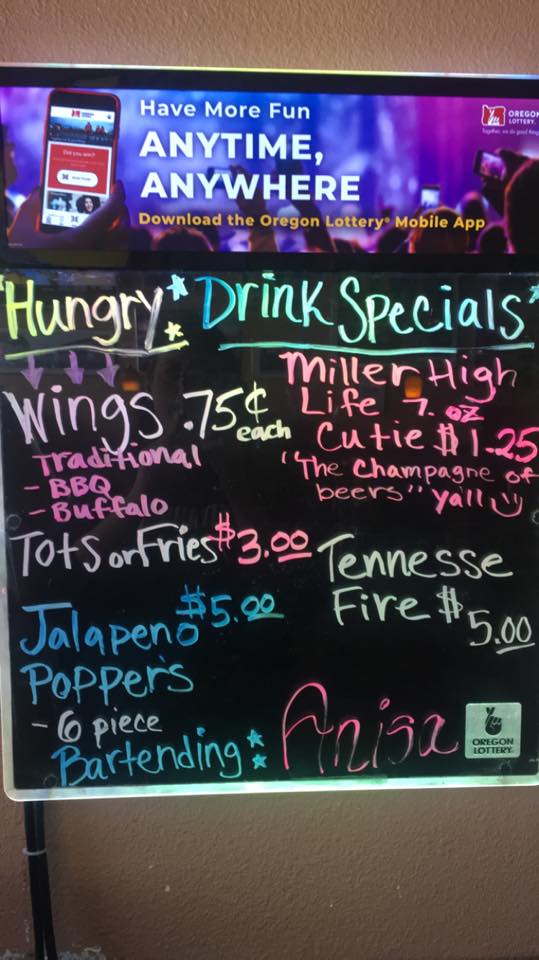 Have More Fun
ANYTIME,
ANYWHERE
Download the Oregon Lottery® Mobile App
OREGON
LOTTERY.
Together, we do good things
Did you win?
Hungry
Wings .75¢
each
Traditional
- BBQ
- Buffalo
Tots or Fries $3.00
Jalapeno $5.00
Poppers
- 6 piece
Bartending:
Anisa
Drink Specials
Miller High
Life 7. oz
Cutie $1.25
"The Champagne of
beers" yall
Tennesse
Fire $5.00
OREGON
LOTTERY.